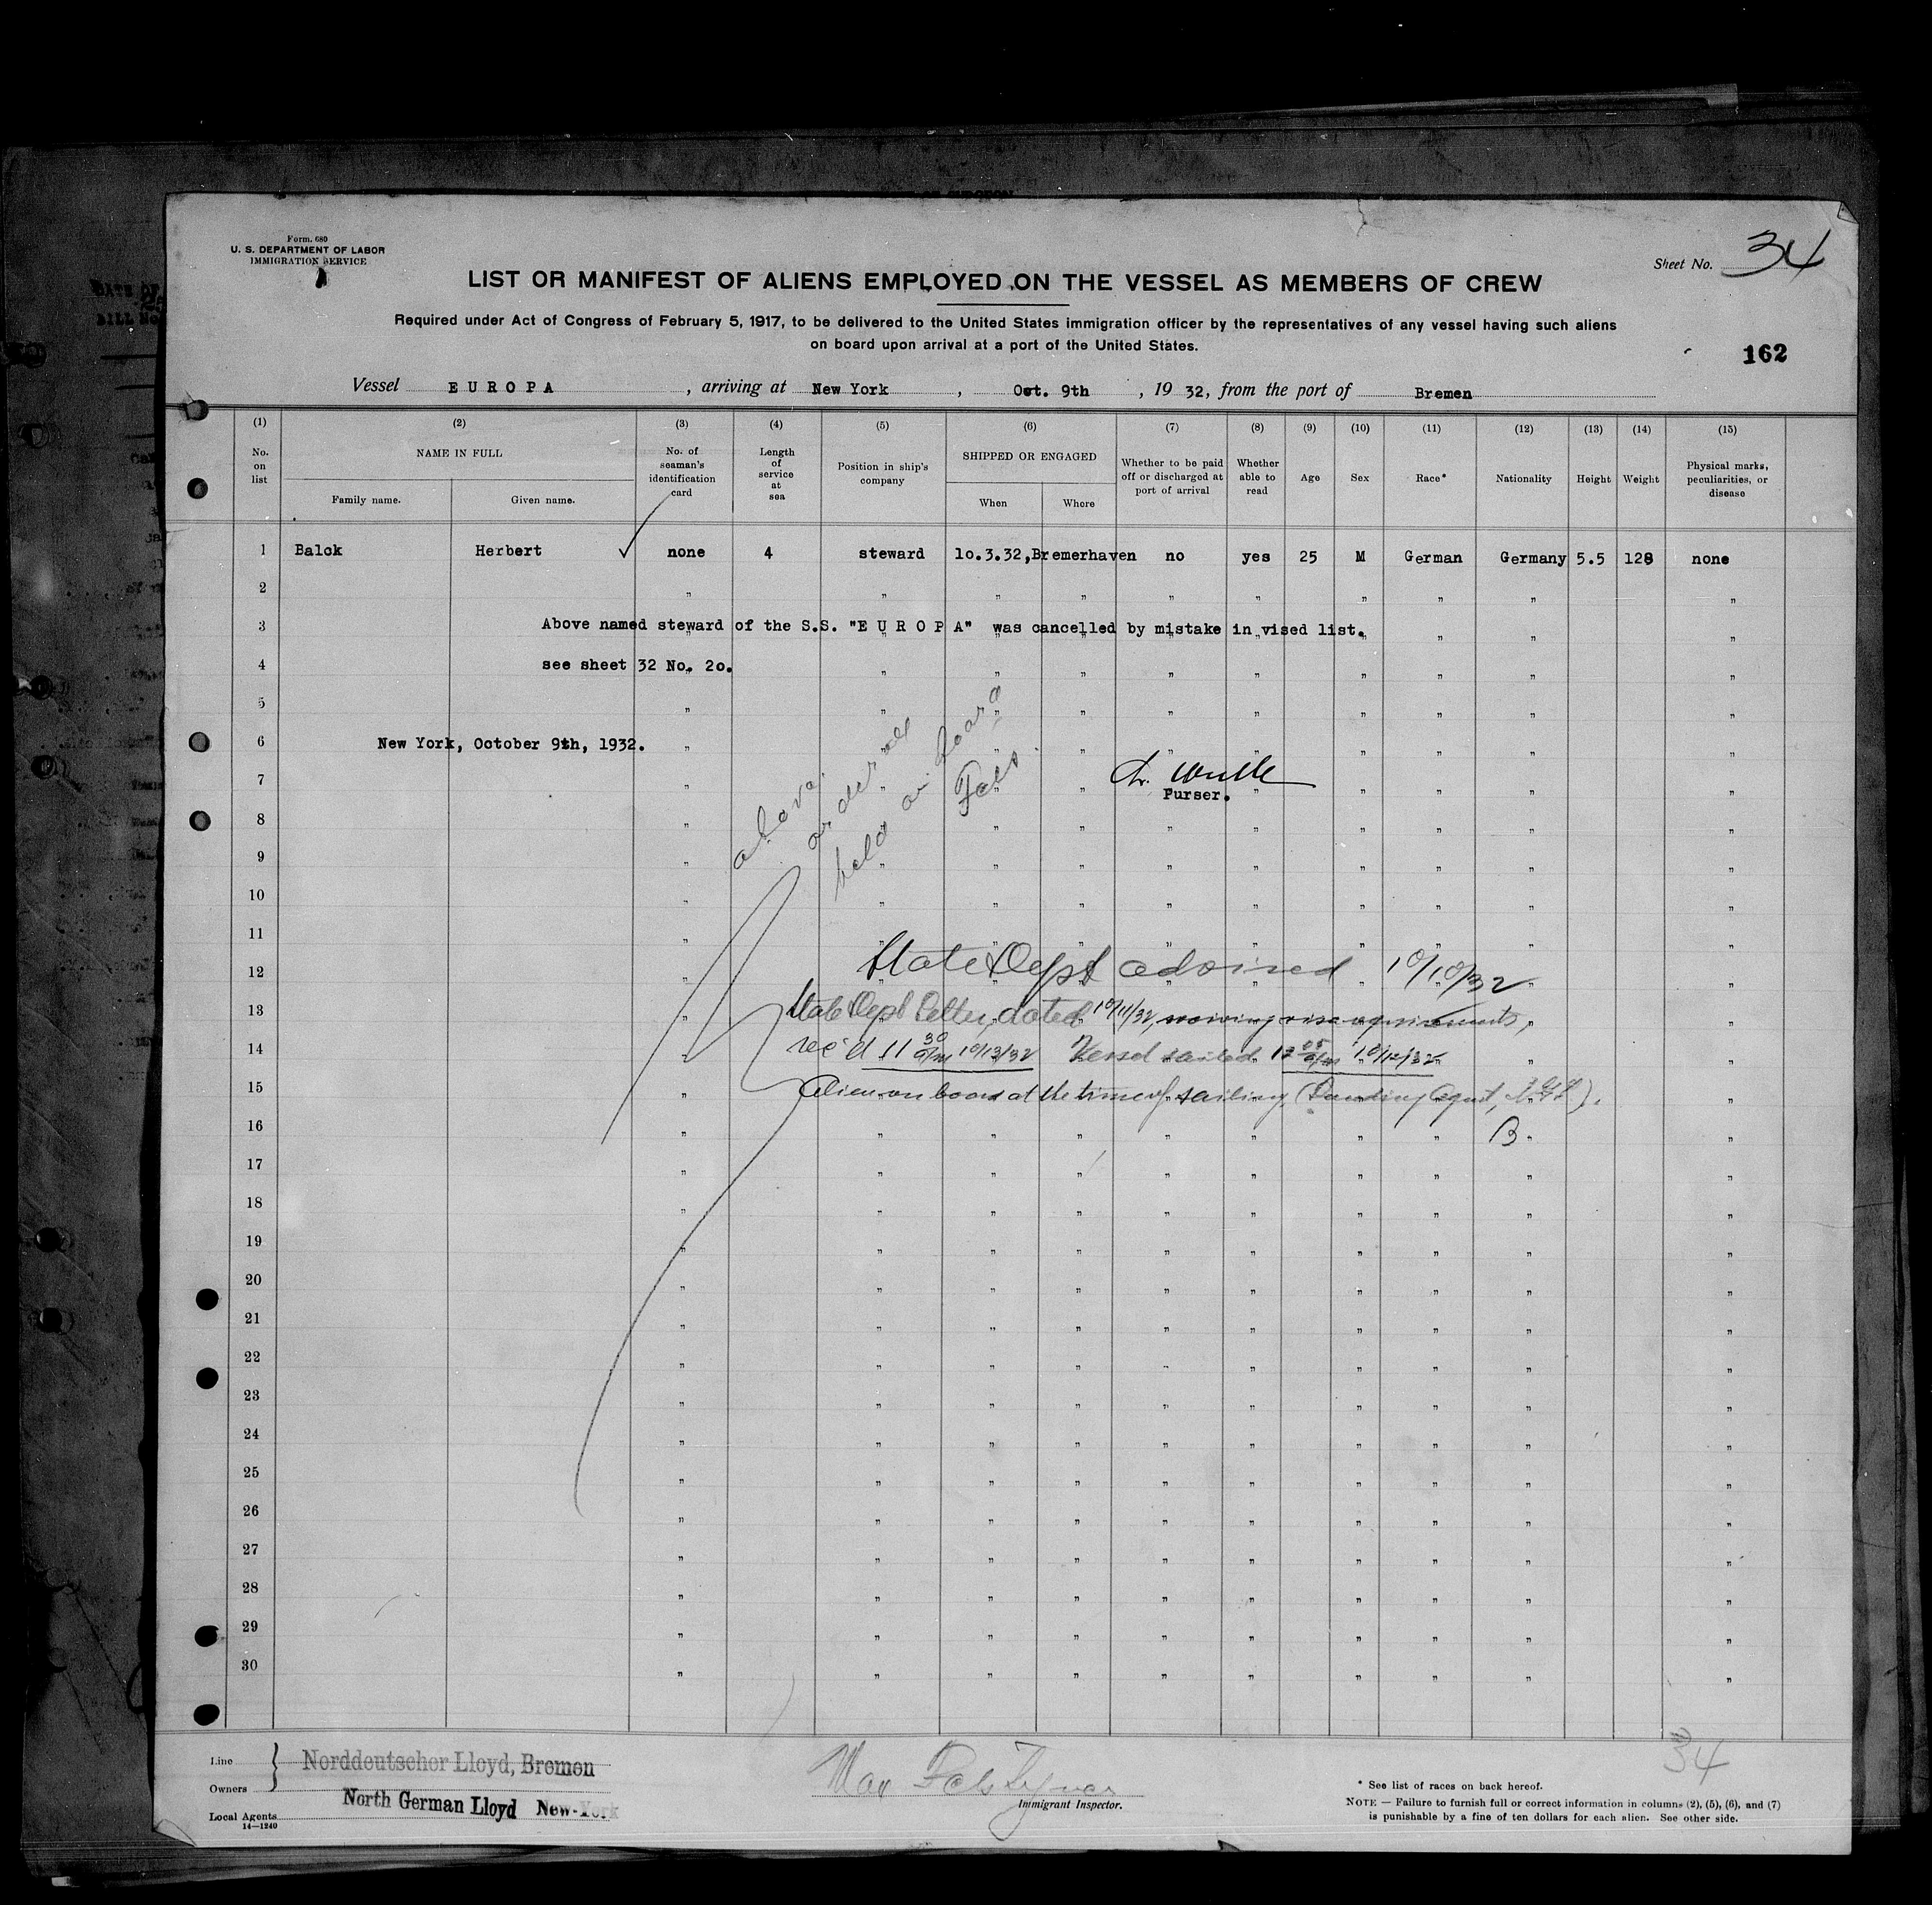 Form. 680
U. S. DEPARTMENT OF LABOR
IMMIGRATION SERVICE
Sheet No. 34
LIST OR MANIFEST OF ALIENS EMPLOYED ON THE VESSEL AS MEMBERS OF CREW
Required under Act of Congress of February 5, 1917, to be delivered to the United States immigration officer by the representatives of any vessel having such aliens
on board upon arrival at a port of the United States.
162
Vessel EUROPA, arriving at New York, Oct. 9th, 19 32, from the port of Bremen
(1) (2) (3) (4) (5) (6) (7) (8) (9) (10) (11) (12) (13) (14) (15)
No. on list
NAME IN FULL
Family name. Given name.
No. of seaman's identification card
Length of service at sea
Position in ship's company
SHIPPED OR ENGAGED
When Where
Whether to be paid off or discharged at port of arrival
Whether able to read
Age
Sex
Race*
Nationality
Height
Weight
Physical marks, peculiarities, or disease
1 Balck Herbert ✓ none 4 steward 1o.3.32,Bremerhaven no yes 25 M German Germany 5.5 128 none
2
3 Above named steward of the S.S. "E U R O P A" was cancelled by mistake in vised list.
4 see sheet 32 No. 2o.
5
6 New York, October 9th, 1932.
7
Purser.
above
ordered
held on board
Fels.
8
9
10
11
12 State Dept advised 10/10/32
13 State Dept letter, dated 10/11/32, waiving visa requirements,
14 rec'd 11 30 a/m 10/13/32 Vessel sailed 12 05 a/m 10/12/32
15 Alien on board at the time of sailing, (Landing Agent, N.G.L.).
16 B
17
18
19
20
21
22
23
24
25
26
27
28
29
30
34
Line
Owners
Norddeutscher Lloyd, Bremen
Local Agents North German Lloyd New-York
14—1240
Max
Immigrant Inspector.
* See list of races on back hereof.
NOTE — Failure to furnish full or correct information in columns (2), (5), (6), and (7)
is punishable by a fine of ten dollars for each alien. See other side.